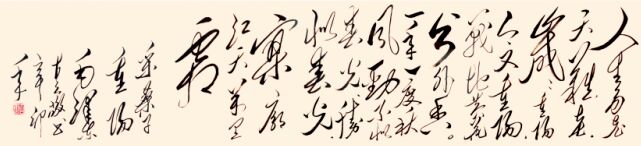 人生易老
天难老
岁岁重阳
今又重阳
战地黄花
分外香
一年一度秋
风劲不似
春光胜
似春光
寥廓
江天万里
霜
采桑子
重阳
毛泽东
辛卯
年